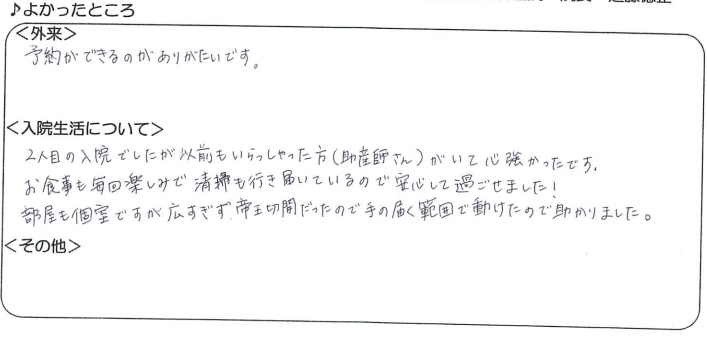 ♪よかったところ
<外来>
予約ができるのがありがたいです。
<入院生活について>
2人目の入院でしたが以前もいらっしゃった方(助産師さん)がいて心強かったです。
お食事も毎回楽しみで清掃も行き届いているので安心して過ごせました!
部屋も個室ですが広すぎず、帝王切開だったので手の届く範囲で動けたので助かりました。
<その他>